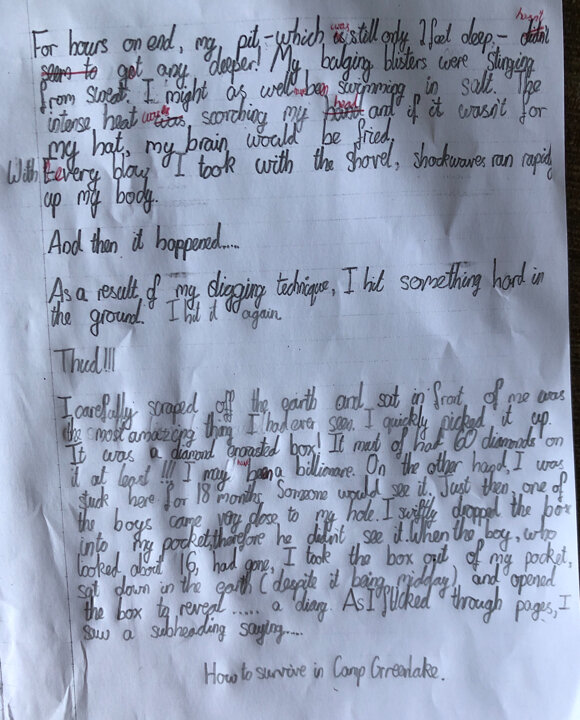 For hours on end, my pit - which was is still only 1 foot deep - hasn't didn't
seem to got any deeper! My bulging blisters were stinging
from sweat. I might as well been swimming in salt. The
intense heat was scorching my head and if it wasn't for
my hat, my brain would be fried.
With Eevery blow I took with the shovel, shockwaves ran rapid
up my body.
And then it happened.....
As a result of my digging technique, I hit something hard in
the ground. I hit it again.
Thud!!!
I carefully scraped off the earth and sat in front of me was
the most amazing thing I had ever seen. I quickly picked it up.
It was a diamond encrusted box! It must of had 60 diamonds on
it at least!!! I my a billionare. On the other hand, I was
stuck here for 18 months. Someone would see it. Just then, one of
the boys came very close to my hole. I swiftly dropped the box
into my pocket, therefore he didn't see it. When the boy, who
looked about 16, had gone, I took the box out of my pocket,
sat down in the earth (despite it being midday) and opened
the box to reveal ..... a diary. As I flicked through pages, I
saw a subheading saying.....
How to survive in Camp Greenlake.